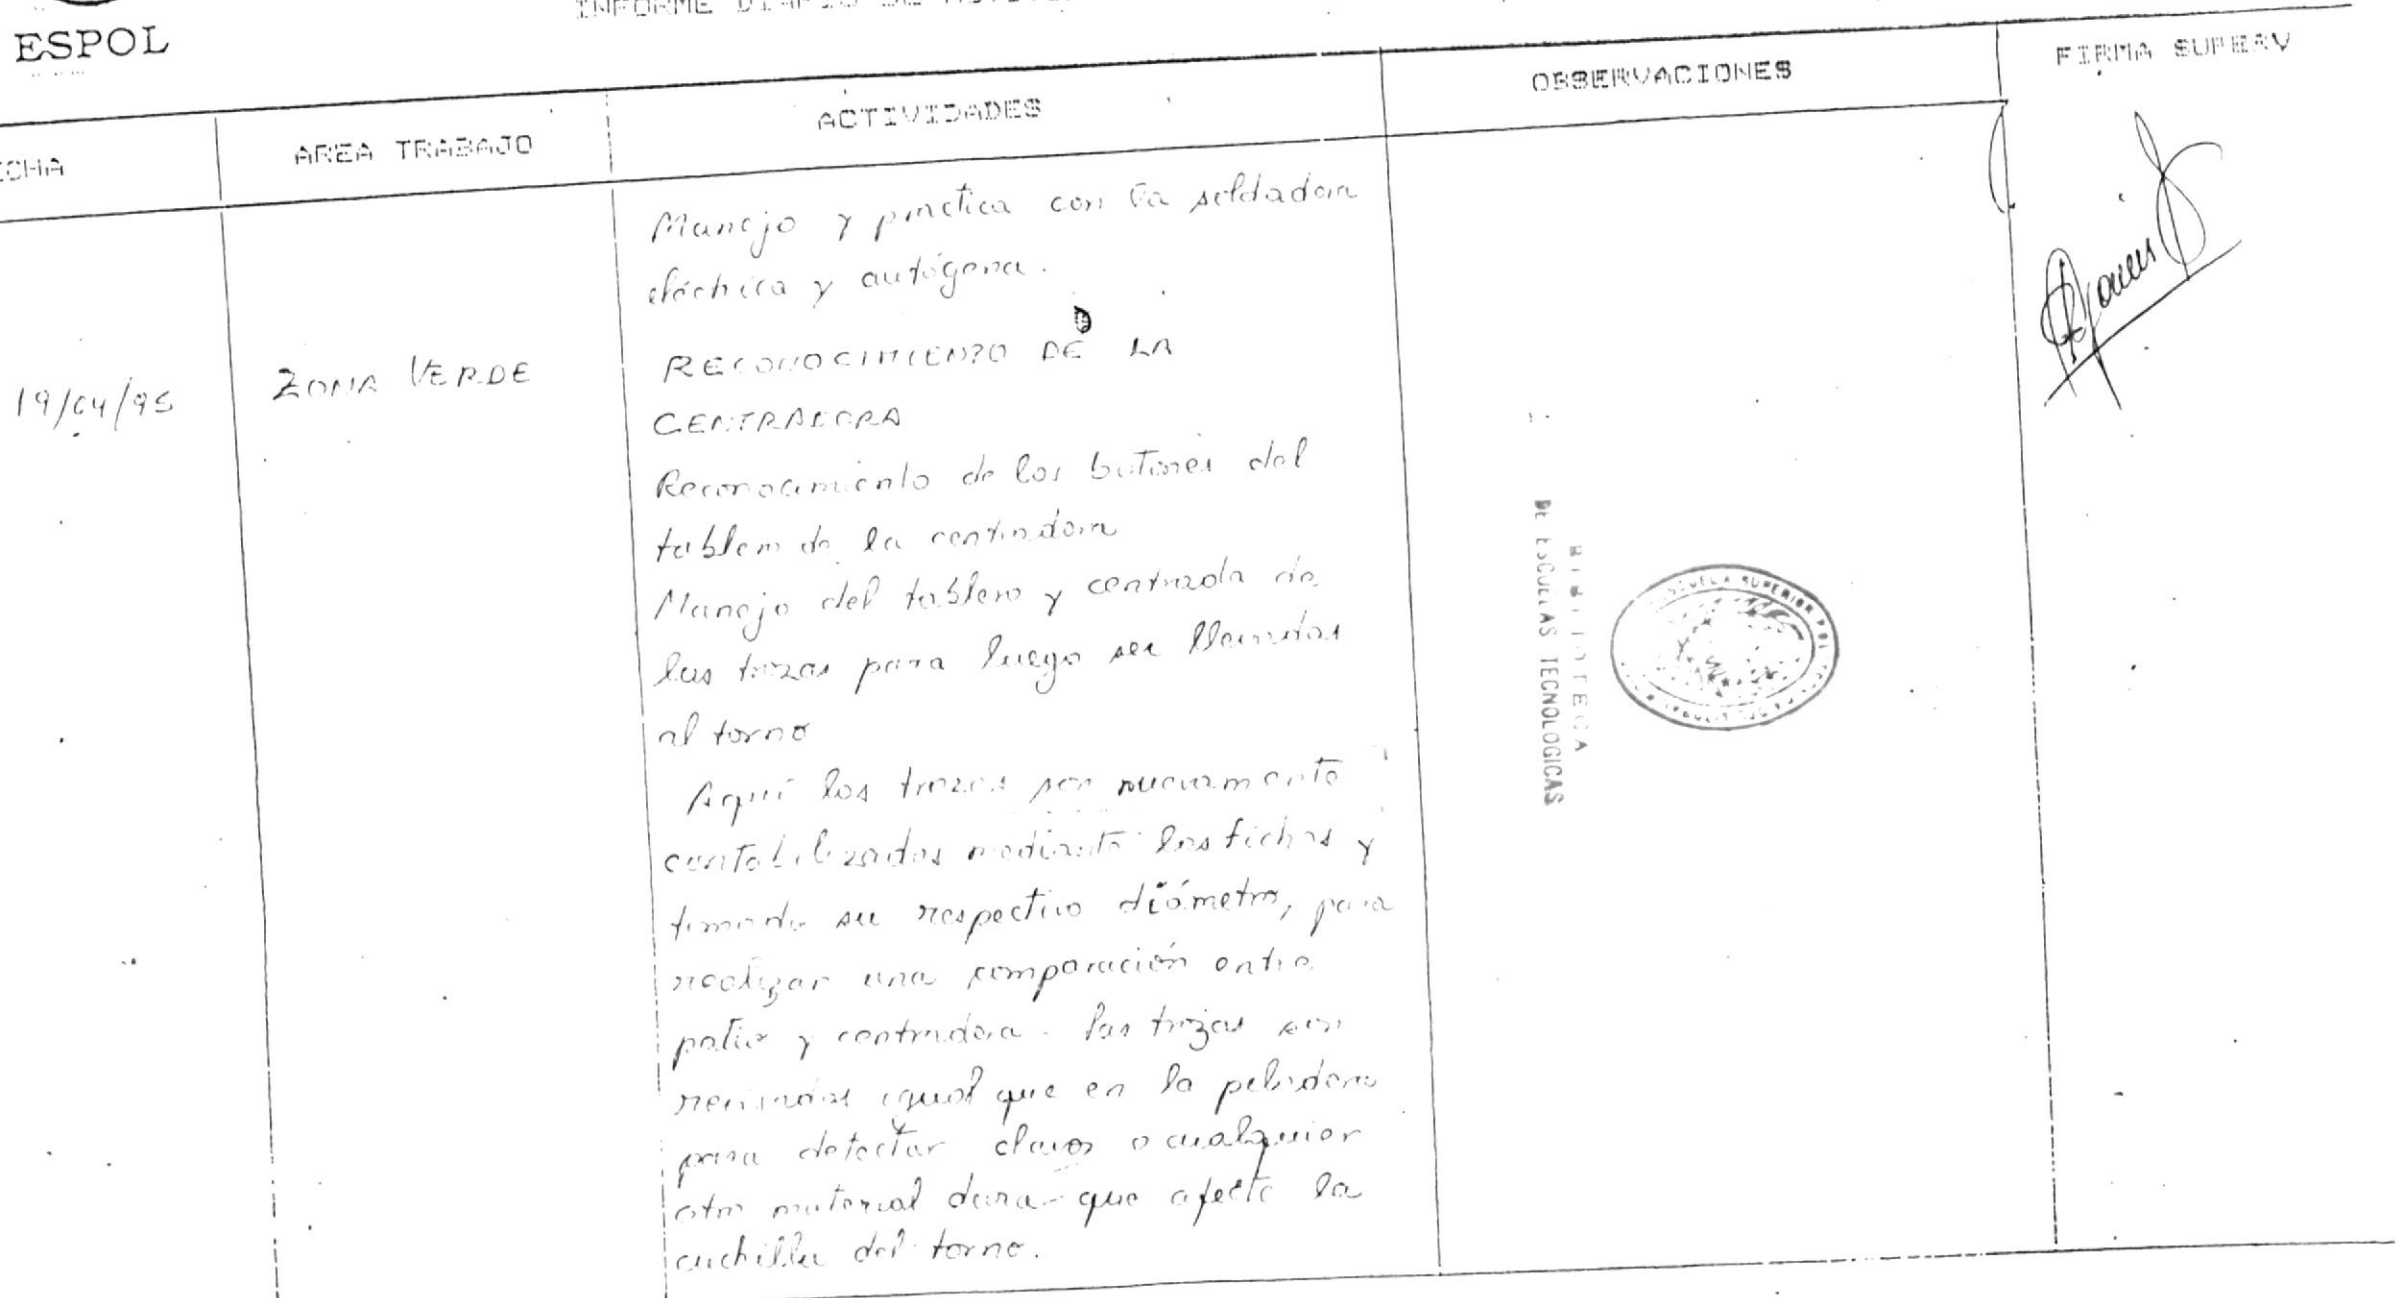 INFORME DIARIO DE
ESPOL
FECHA
AREA TRABAJO
ACTIVIDADES
OBSERVACIONES
FIRMA SUPERV
Manejo y practica con la soldadora
eléctrica y autógena.
19/04/95
ZONA VERDE
RECONOCIMIENTO DE LA
CENTRADORA
Reconocimiento de los botones del
tablero de la centradora
Manejo del tablero y centrada de
las trozas para luego ser llevadas
al torno
Aquí las trozas son nuevamente
contabilizadas mediante las fichas y
tomada su respectivo diámetro, para
realizar una comparación entre
patio y centradora. Las trozas son
revisadas igual que en la peladora
para detectar clavos o cualquier
otro material duro que afecte la
cuchilla del torno.
BIBLIOTECA
DE ESCUELAS TECNOLOGICAS
ESCUELA SUPERIOR POL